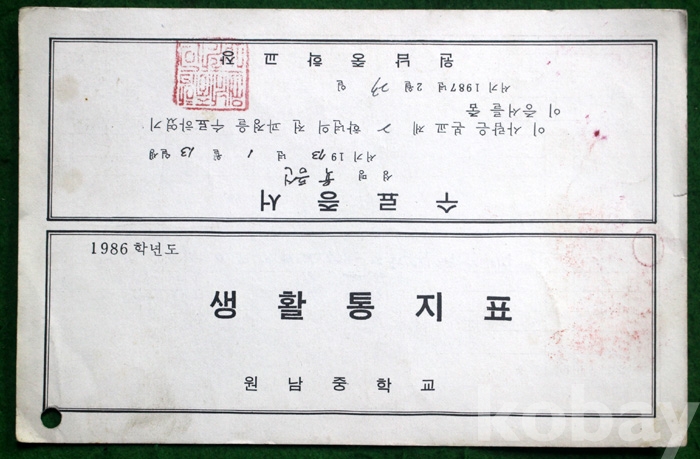 수 료 증 서
성 명
서기 19 73 년 1 월 13 일생
이 사람은 본교 제 2 학년의 전 과정을 수료하였기
이 증서를 줌
서기 1987년 2월 23 일
원 남 중 학 교 장
1986 학년도
생 활 통 지 표
원 남 중 학 교
kobay